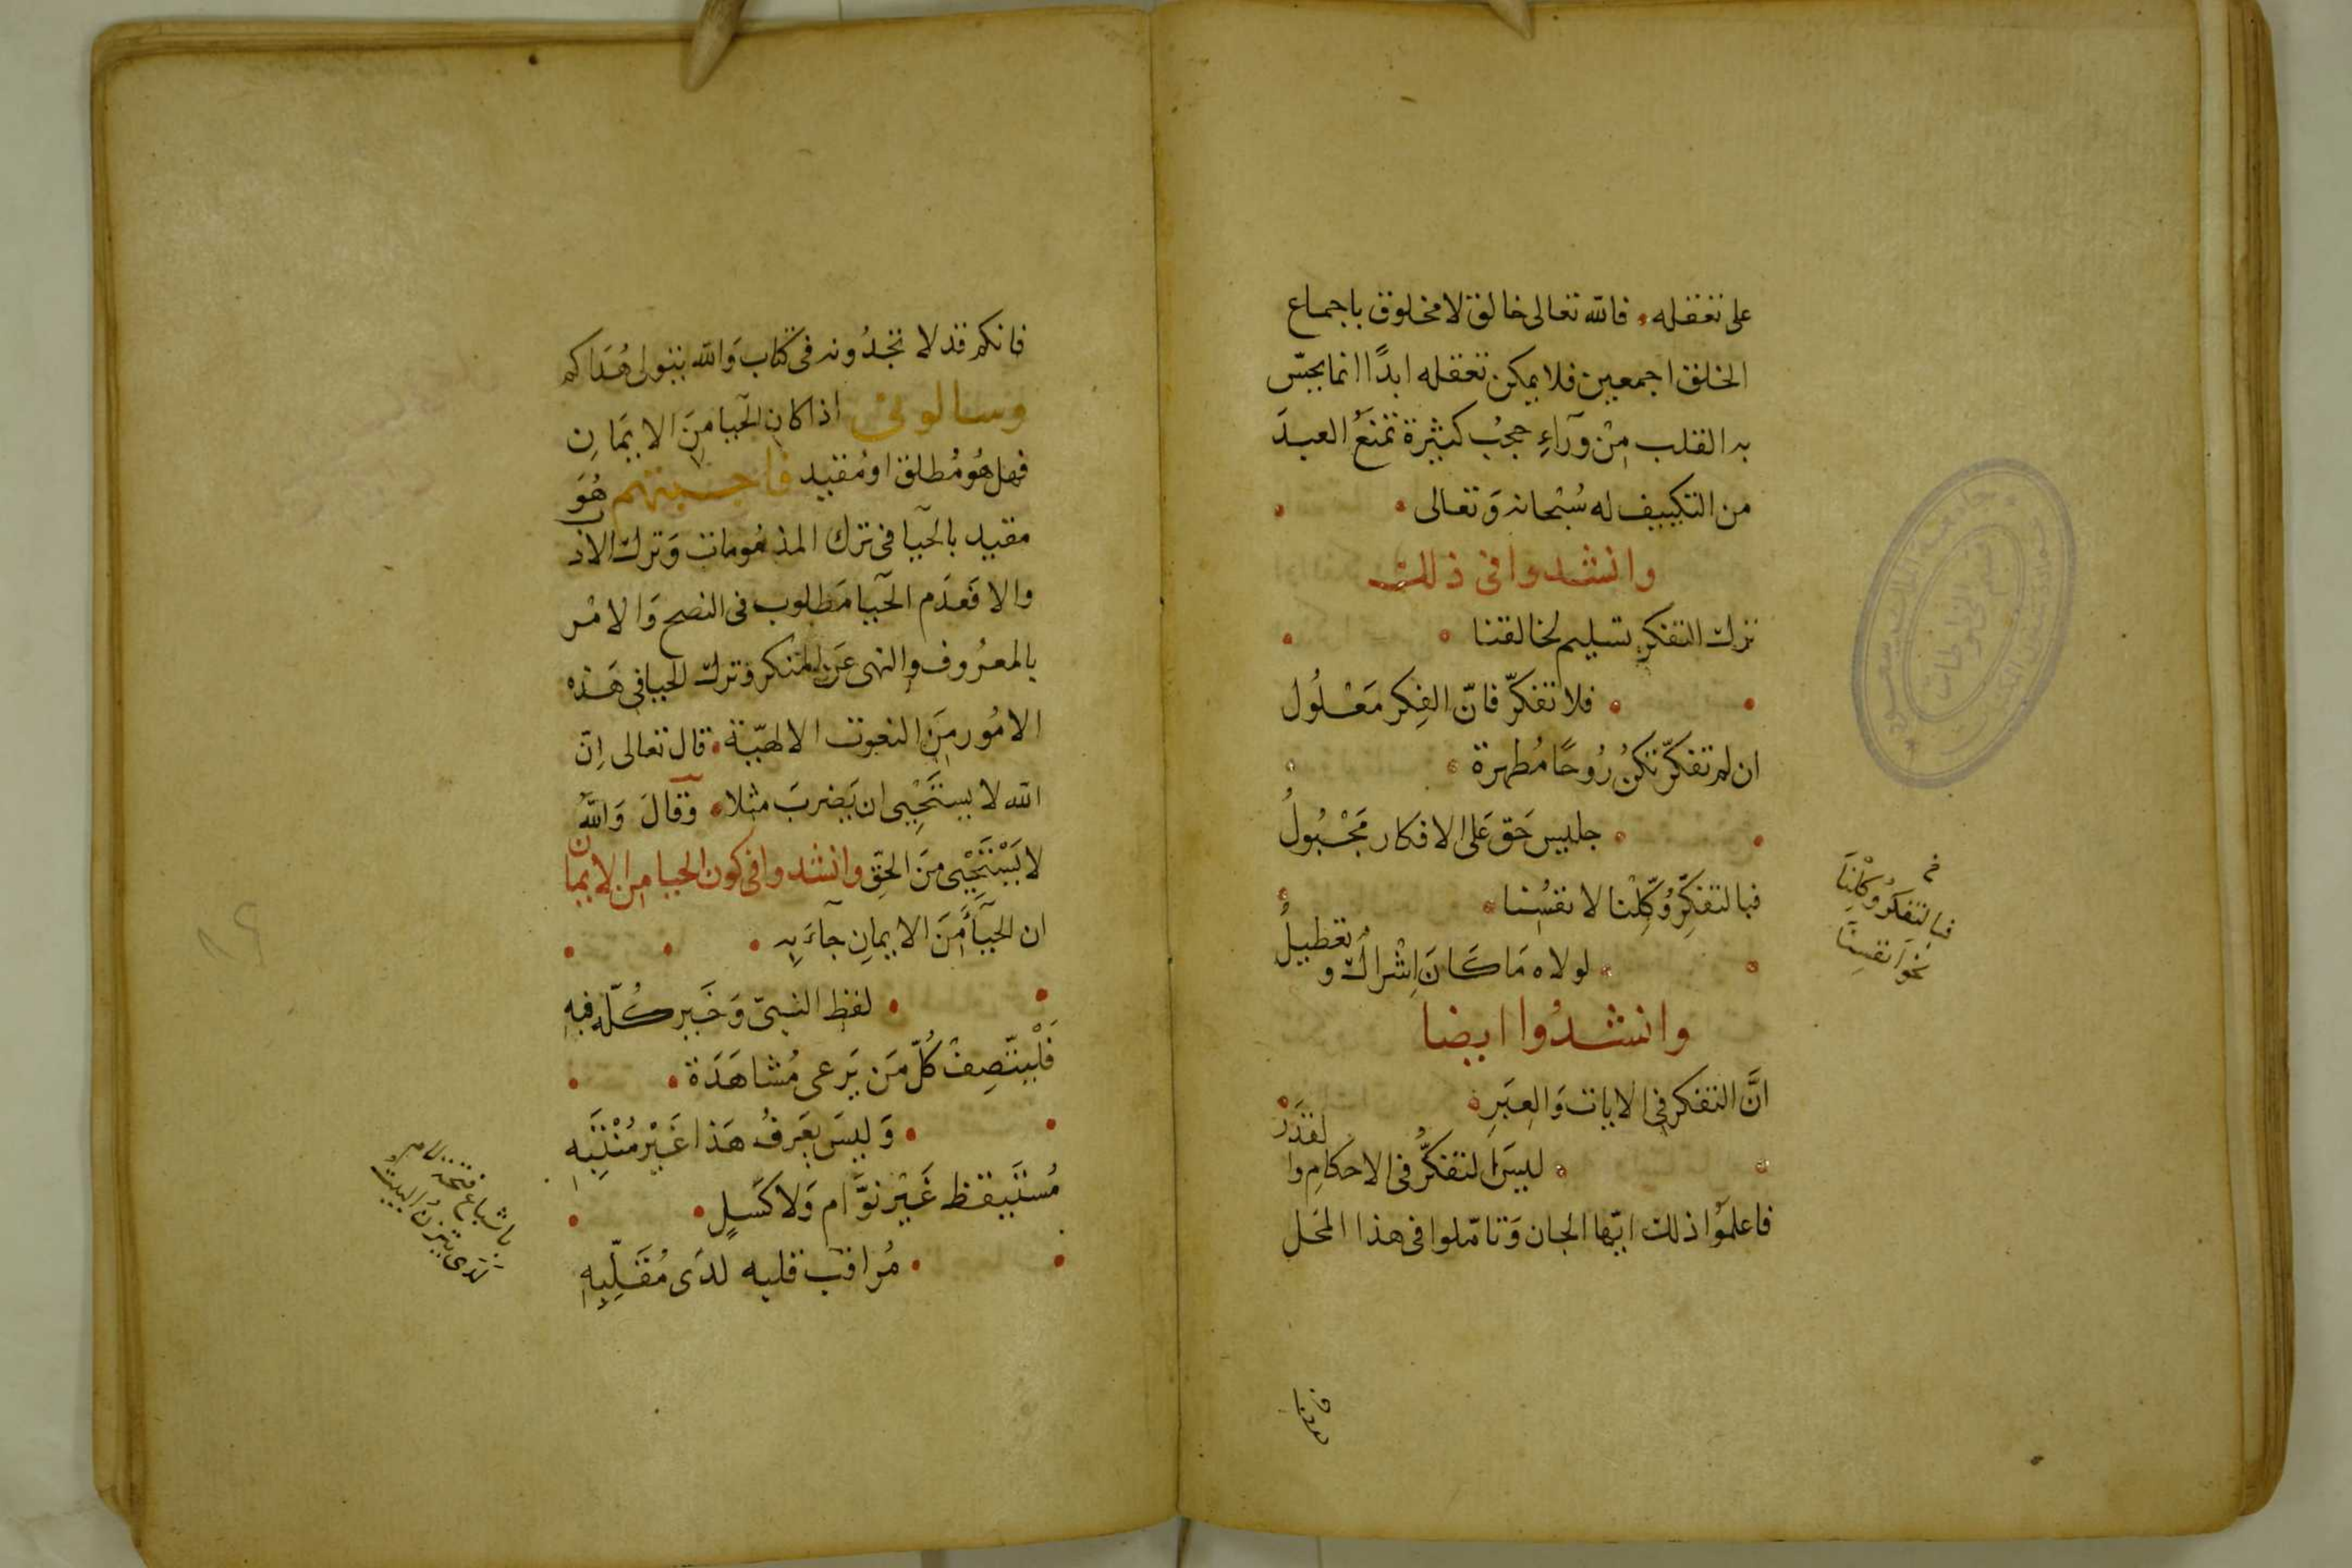 على تعقله. فالله تعالى خالق لا مخلوق باجماع
الخلق اجمعين فلا يمكن تعقله ابدًا انما يحسّ
به القلب مِنْ وَرَآءِ حجب كثيرة تمنَعُ العبدَ
من التكييف له سُبْحانه وَتعالى
وانشدوا فى ذلك
ترك التفكرِ تسليم لخالقنا
فلا تفكرّ فانّ الفِكر مَعْلُولُ
ان لم تفكرّ تكنْ رُوحًا مُطهرة
جليس حَق عَلى الافكار مَجْبُولُ
فبالتفكّرِ وُكِّلْنا لانفسُنا
لولاه مَا كَانَ اِشْراك وتعطيلُ
وانشدُوا ايضا
انَّ التفكر فى الايات وَالعِبَرِ
ليسَ التفكُّر فى الاحكامِ والقَدَرْ
فاعلمُوا ذلك ايّها الجان وَتامّلوا فى هذا المحَل
فالتفكرُ وكلنَا
نحو انفسِنَا
فانكم قد لا تجدُونه فى كتاب وَالله يتولى هُدَاكم
وسالونى اذا كان الحَيا مِنَ الايمَانِ
فهل هُو مُطلق او مُقيد فاجبتهم هُوَ
مقيد بالحَيا فى ترك المذمومات وَترك الادب
والا فَعدَم الحَيا مَطلوب فى النصح وَالامْر
بالمعرُوف والنهى عَن المنكر وَترك الحيا فى هَذه
الامُور مِنَ النعوت الالهيّة. قال تعالى اِنّ
الله لا يستَحِيى ان يَضربَ مثلا. وَقَالَ وَاللهُ
لا يَسْتَحِيْى مِنَ الحَقِّ وانشدوا فى كون الحيا من الايمان
ان الحَيآءَ مِنَ الايمانِ جآءَ بِه
لفظ النبىّ وَخَير كُلّه فيهِ
فَلْيَتّصِفْ كُلّ مَن يَرعى مُشاهَدَة
وَليسَ يعَرفُ هَذا غَيْر مُنْتَبِهِ
مُستَيقظ غَيْر نوَّام وَلا كَسَلٍ
مُراقبٌ قلبه لدَى مُقَلِّبِهِ
باشباع فتحة